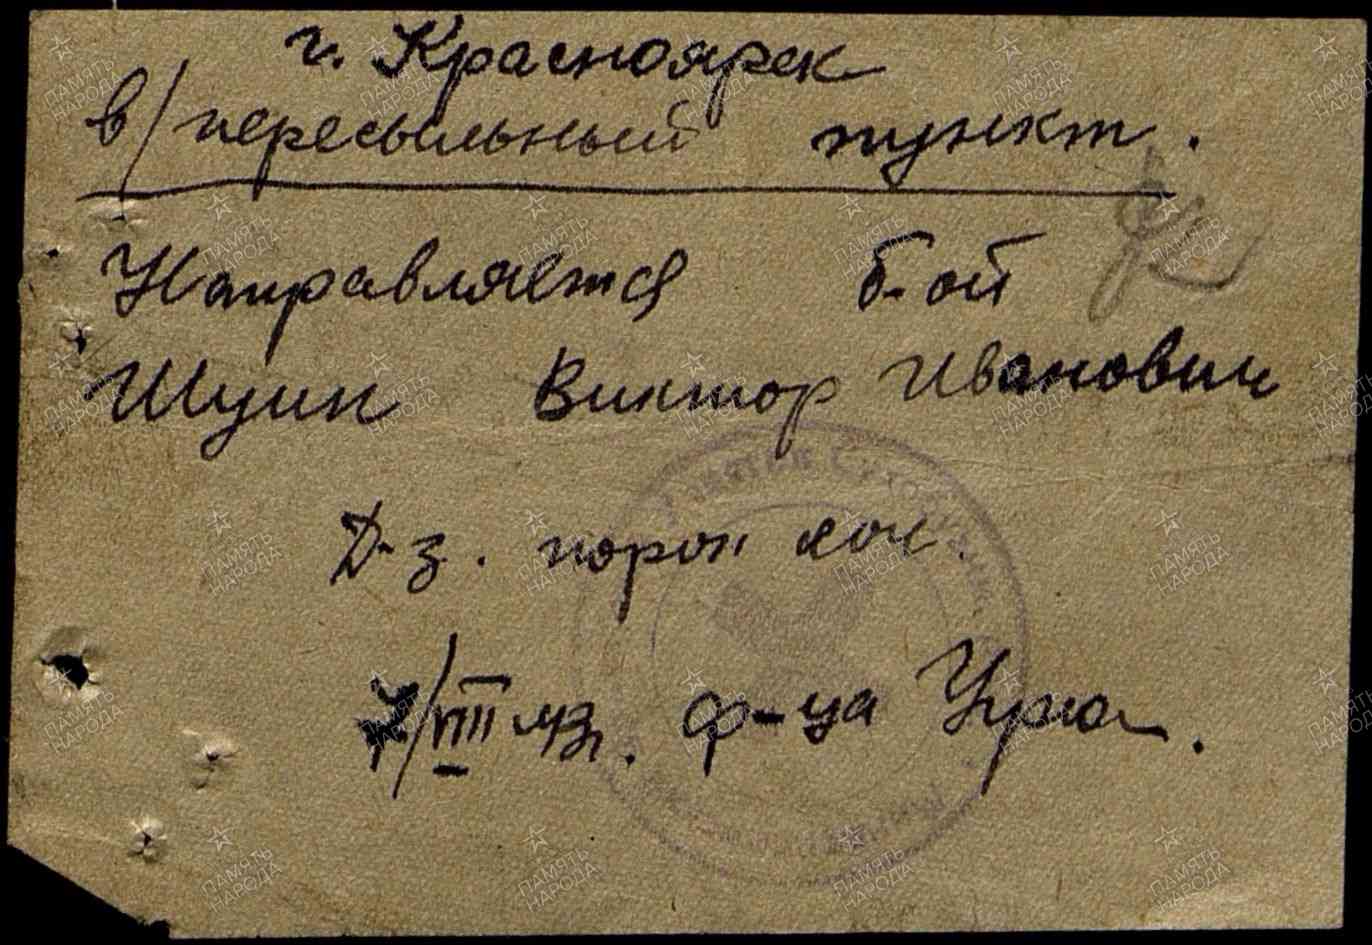 г. Красноярск
в/пересыльный пункт.
Направляется б-ой
Шуин Виктор Иванович
Д-з. порок
7/VIII 43г. ф-ца
ПАМЯТЬ НАРОДА